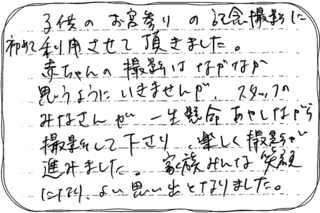 子供のお宮参りの記念撮影に
初めて利用させて頂きました。
赤ちゃんの撮影はなかなか
思うようにいきませんが、スタッフの
みなさんが一生懸命あやしながら
撮影して下さり、楽しく撮影が
進みました。家族みんな笑顔
になり、よい思い出となりました。